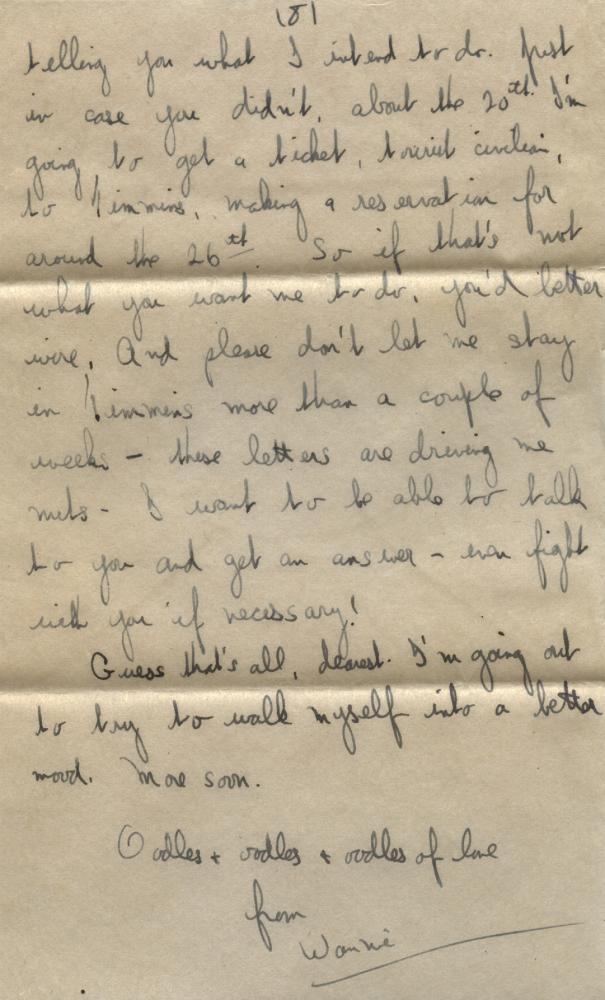 181
telling you what I intend to do. Just
in case you didn't, about the 20th I'm
going to get a ticket, tourist civilian,
to Timmins, making a reservation for
around the 26th. So if that's not
what you want me to do, you'd better
wire. And please don't let me stay
in Timmins more than a couple of
weeks - these letters are driving me
nuts - I want to be able to talk
to you and get an answer - even fight
with you if necessary!
Guess that's all, dearest. I'm going out
to try to walk myself into a better
mood. More soon.
Oodles + oodles + oodles of love
from